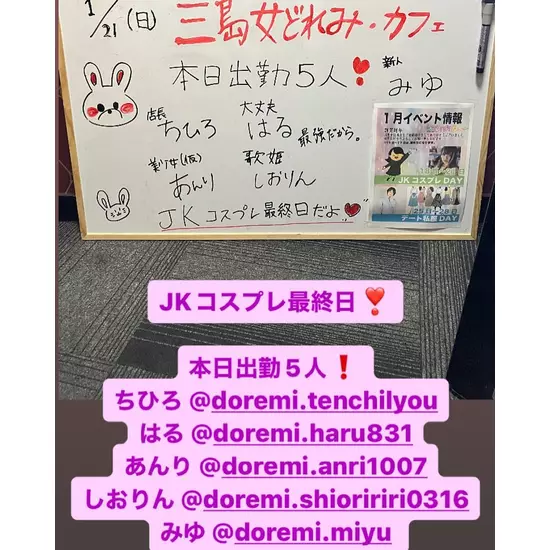 1/21(日)
三島女どれみ・カフェ
本日出勤5人❣
新人
みゆ
店長
ちひろ
大丈夫
はる
最強だから。
(仮)
あんり
歌姫
しおりん
JKコスプレ最終日だよ
1月イベント情報
JKコスプレDAY
デート私服DAY
JKコスプレ最終日❣
本日出勤5人❗
ちひろ @doremi.tenchilyou
はる @doremi.haru831
あんり @doremi.anri1007
しおりん @doremi.shioririri0316
みゆ @doremi.miyu